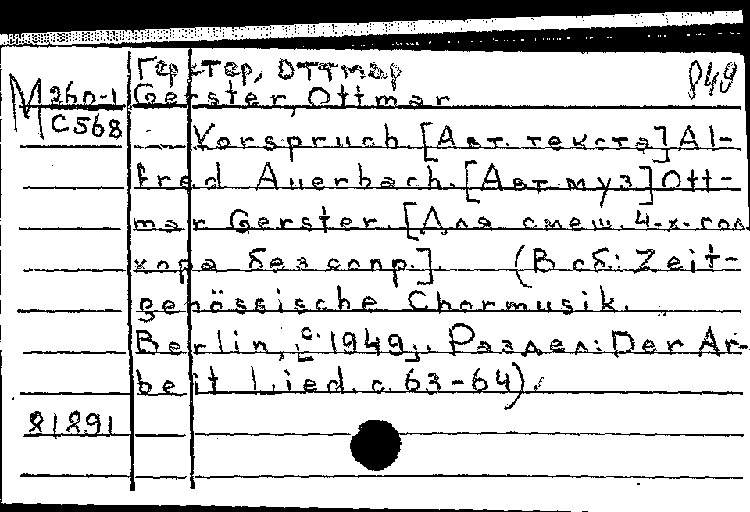 Герстер, Оттмар 849
М 26п-1 Gerster, Ottmar
С568
Vorspruch. [Авт. текста] Al-
fred Auerbach. [Авт. муз] Ott-
mar Gerster. [Для смеш. 4-х-гол
хора без сопр.]. (В сб.: Zeit-
genössische Chormusik.
Berlin, [с. 1949]. Раздел: Der Ar-
beit Lied. с. 63-64).
81891